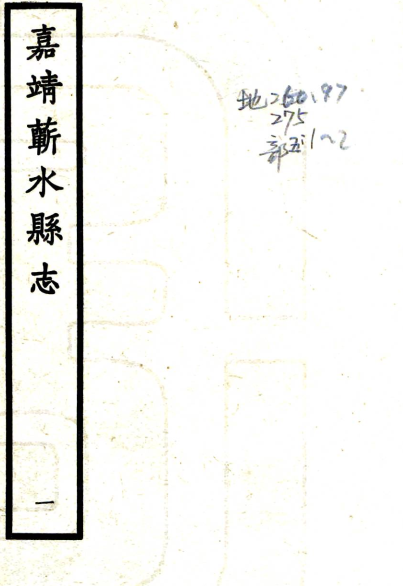 嘉靖蘄水縣志
一
地260.87
275
部五:1~2